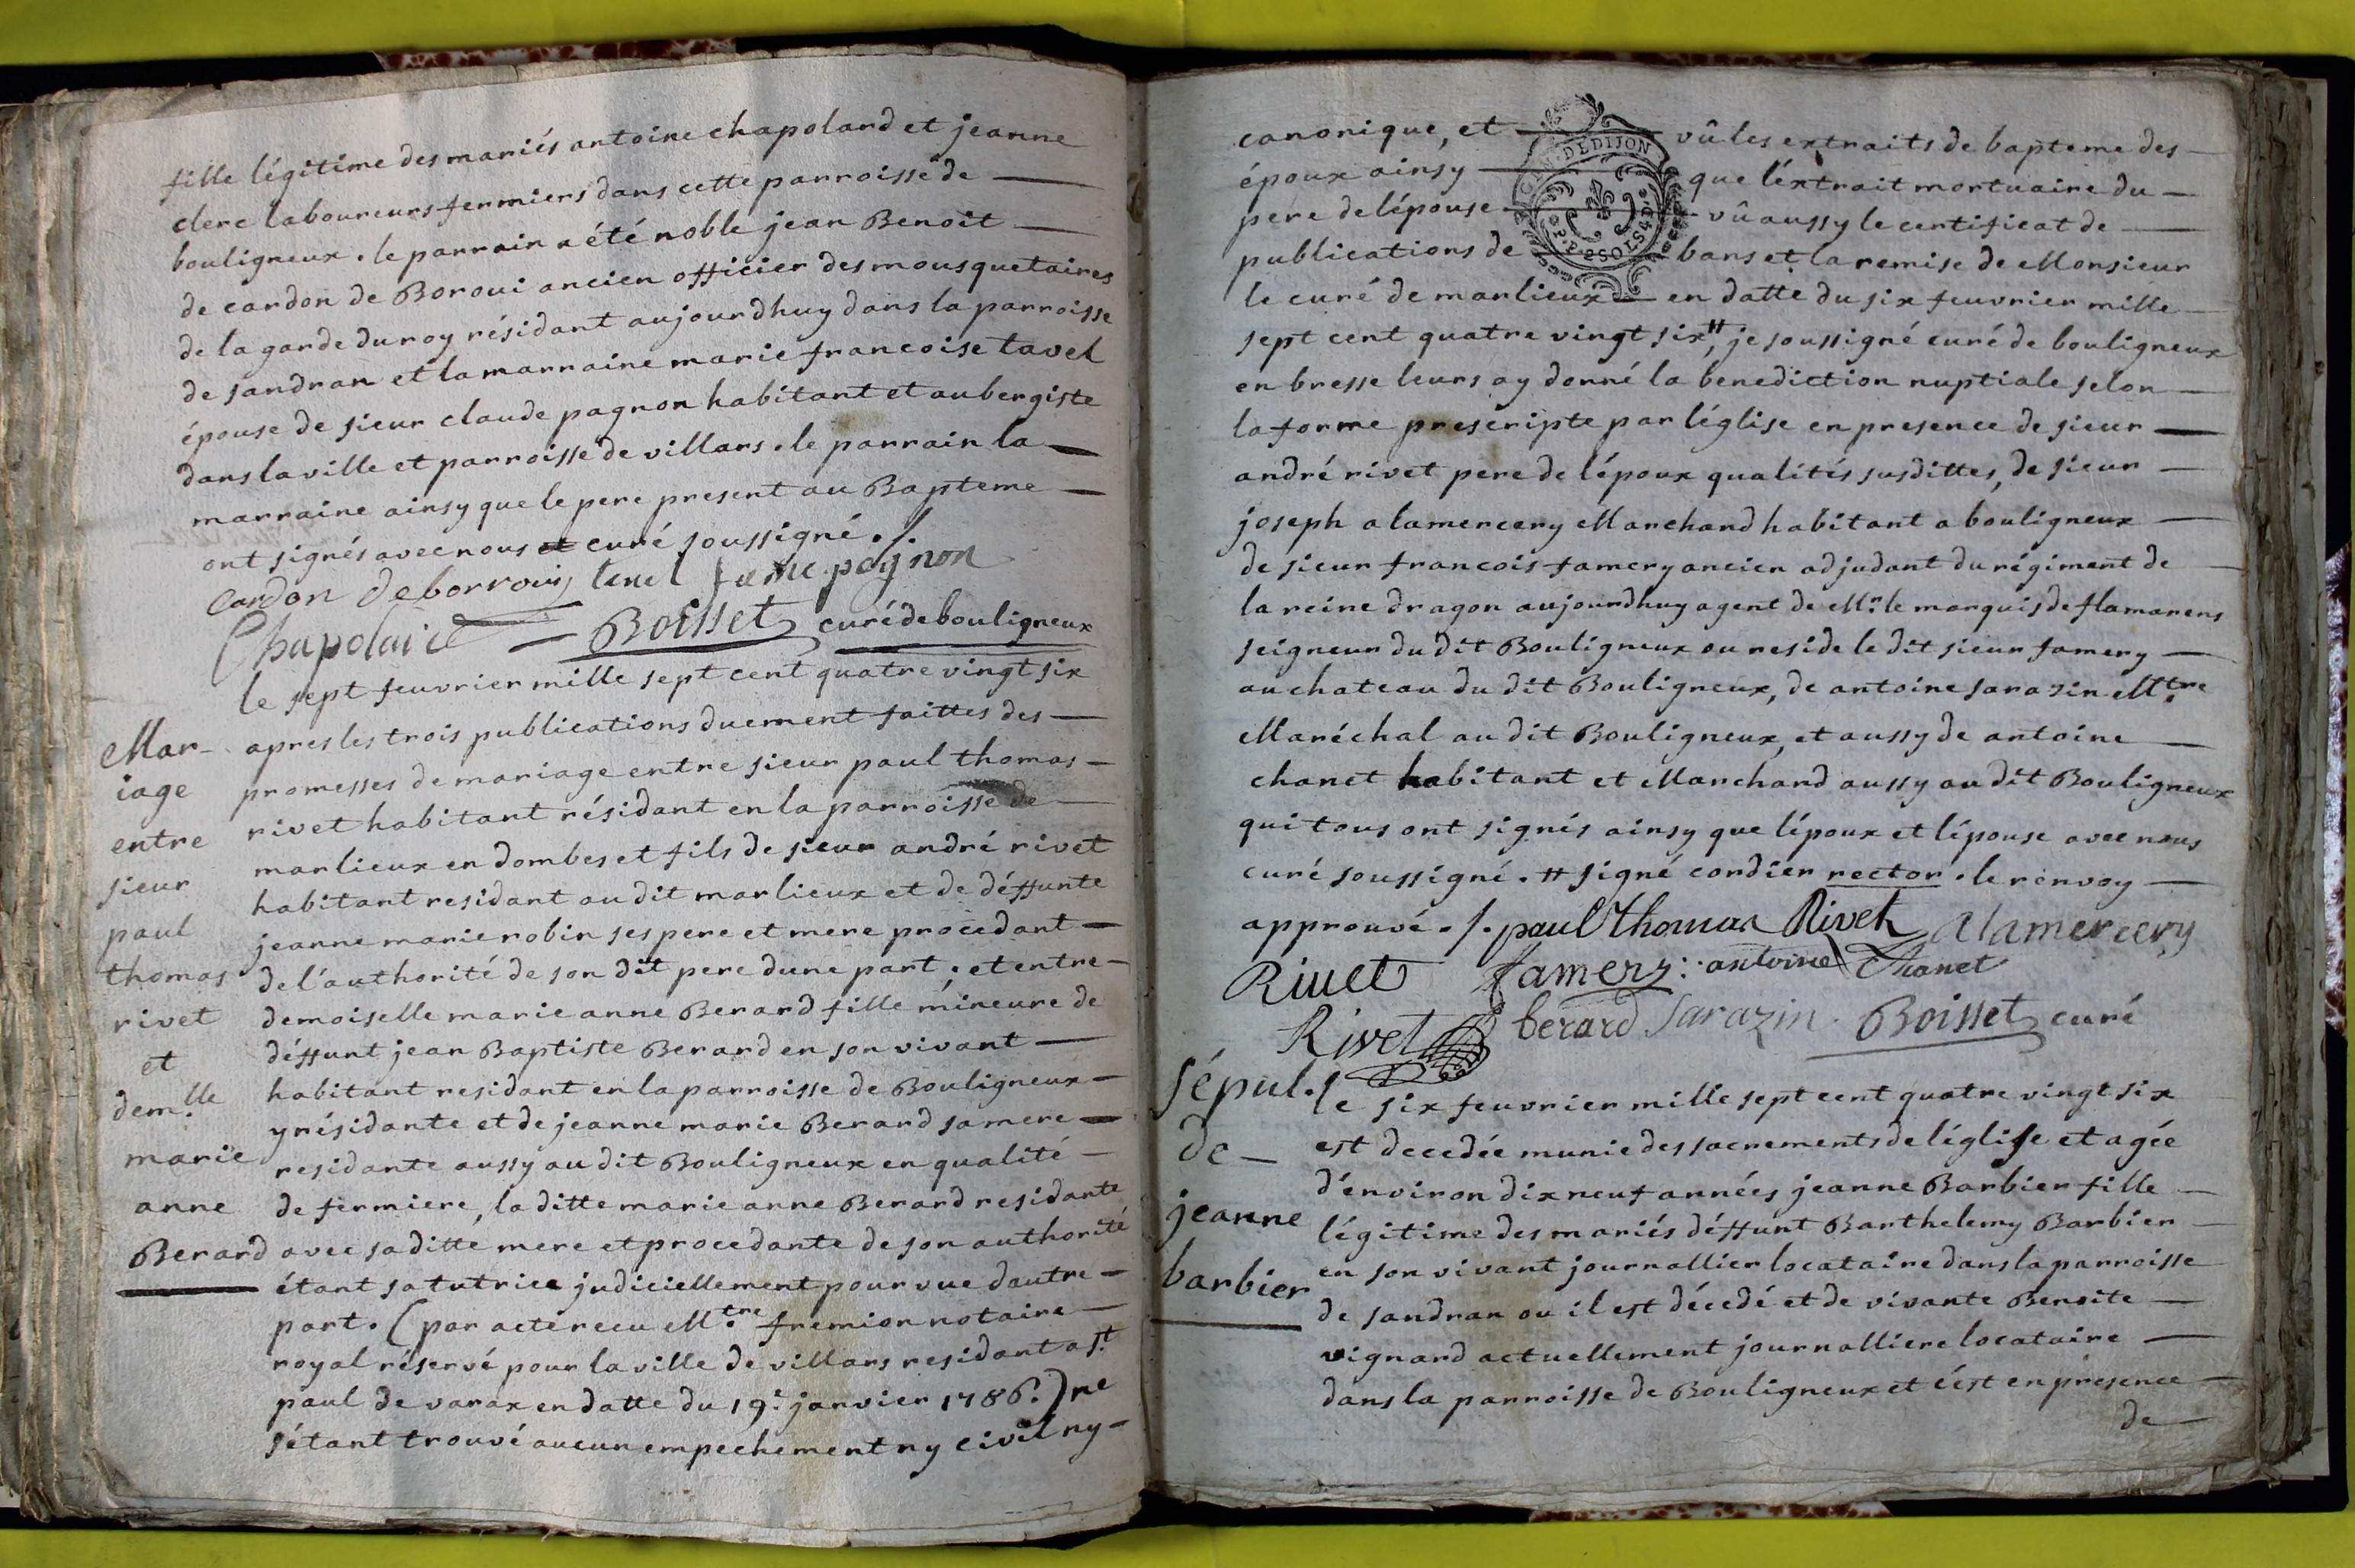 fille légitime des mariés antoine chapoland et jeanne
clerc laboureurs fermiers dans cette parroisse de
bouligneux . le parrain a été noble jean Benoit
de cardon de Boroui ancien officier des mousquetaires
de la garde du roy résidant aujourdhuy dans la parroisse
de sandran et la marraine marie francoise tavel
épouse de sieur claude pagnon habitant et aubergiste
dans la ville et parroisse de villars . le parrain la
marraine ainsy que le pere present au Bapteme
ont signés avec nous curé soussigné ./.
Cardon Deborroui tavel fame pagnon
Chapolard Boisset curé de bouligneux
le sept feuvrier mille sept cent quatre vingt six
Mar-
iage
entre
sieur
paul
thomas
rivet
et
dem.lle
marie
anne
Berard
apres les trois publications duement faittes des
promesses de mariage entre sieur paul thomas
rivet habitant résidant en la parroisse de
marlieux en dombes et fils de sieur andré rivet
habitant residant au dit marlieux et de déffunte
jeanne marie robin ses pere et mere procedant
de l'authorité de son dit pere dune part . et entre
demoiselle marie anne Berard fille mineure de
déffunt jean Baptiste Berard en son vivant
habitant residant en la parroisse de Bouligneux
y résidante et de jeanne marie Berard sa mere
residante aussy au dit Bouligneux en qualité
de fermiere, la ditte marie anne Berard residante
avec sa ditte mere et procedante de son authorité
étant sa tutrice judiciellement pourvue dautre
part . ( par acte recu M.tre fremion notaire
royal réservé pour la ville de villars residant a s.t
paul de varax en datte du 19.e janvier 1786. ) ne
s'étant trouvé aucun empechement ny civil ny
canonique, et vû les extraits de bapteme des
époux ainsy que l'extrait mortuaire du
pere de l'épouse vû aussy le certificat de
publications de bans et la remise de Monsieur
le curé de marlieux en datte du six feuvrier mille
sept cent quatre vingt six, # je soussigné curé de bouligneux
en bresse leurs ay donné la benediction nuptiale selon
la forme prescripte par l'église en presence de sieur
andré rivet pere de l'époux qualités susdittes, de sieur
joseph alamercery Marchand habitant a bouligneux
de sieur francois famery ancien adjudant du régiment de
la reine dragon aujourdhuy agent de M.r le marquis de flamarens
seigneur du dit Bouligneux ou reside le dit sieur famery
au chateau du dit Bouligneux, de antoine sarazin M.tre
Maréchal au dit Bouligneux, et aussy de antoine
chanet habitant et Marchand aussy au dit Bouligneux
qui tous ont signés ainsy que l'époux et l'épouse avec nous
curé soussigné . # signé cordier rector . le renvoy
approuvé ./. paul thomas Rivet Alamercery
Rivet famery : antoine Chanet
Rivet berard Sarazin Boisset curé
Sépul.
de
jeanne
barbier
le six feuvrier mille sept cent quatre vingt six
est decedée munie des sacrements de l'église et agée
d'environ dix neuf années jeanne Barbier fille
légitime des mariés déffunt Barthelemy Barbier
en son vivant journallier locataire dans la parroisse
de sandran ou il est décedé et de vivante Benoite
vignard actuellement journalliere locataire
dans la parroisse de Bouligneux et c'est en presence
de